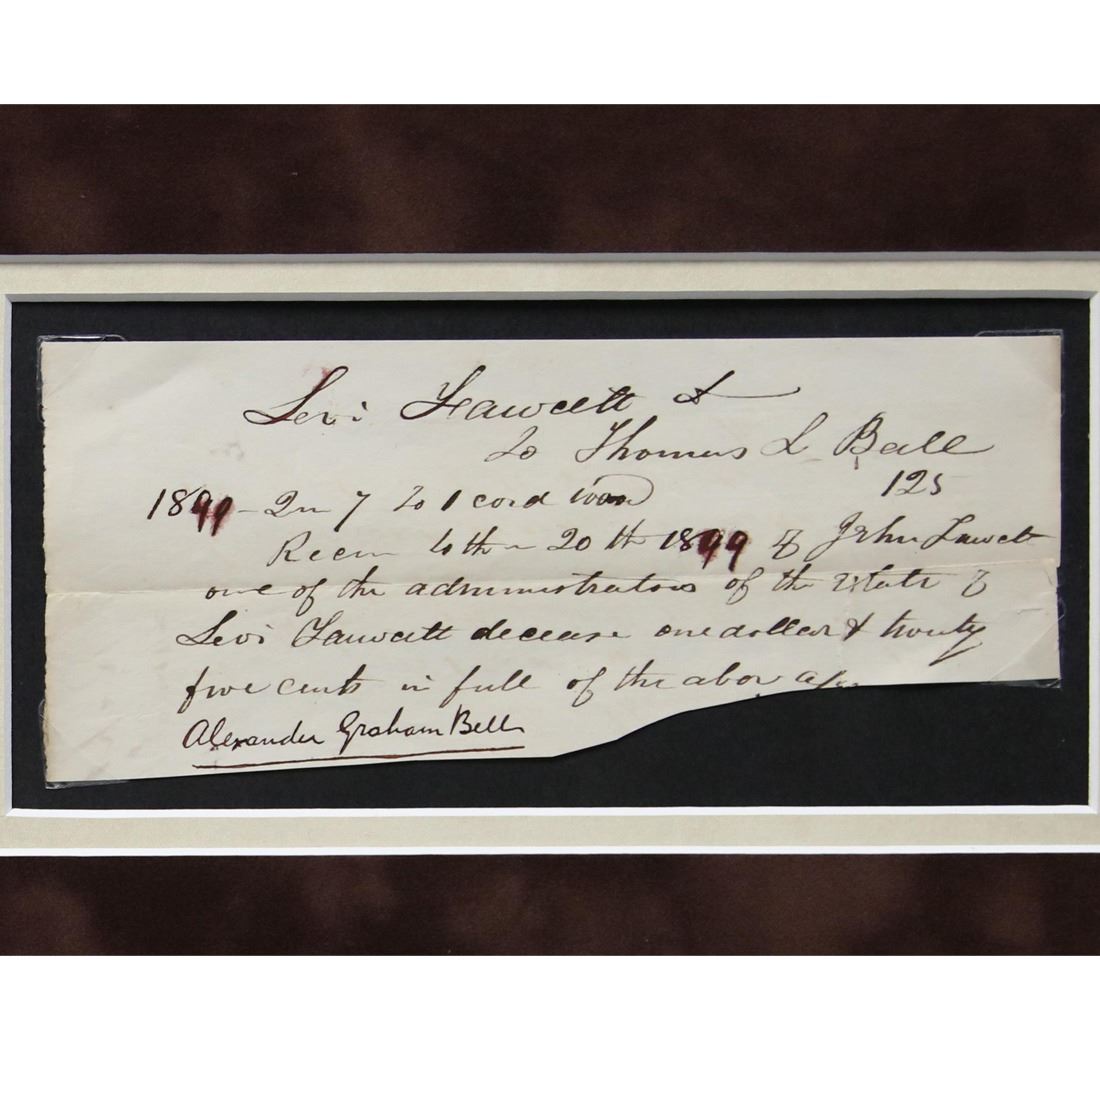 Levi Fawcett
To Thomas L Ball
1899 - 7 To 1 cord 125
20th 1899 of John Fawcett
one of the administrators of the Estate of
Levi Fawcett decease one dollar & twenty
five cents in full of the abov
Alexander Graham Bell